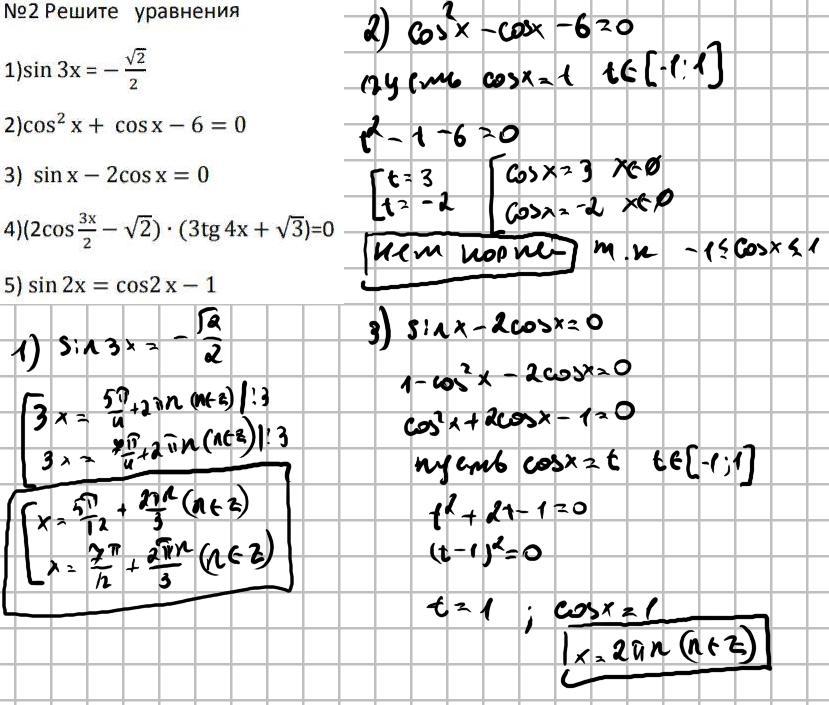 №2 Решите уравнения
1)sin 3x = − √2/2
2)cos² x + cos x − 6 = 0
3) sin x − 2cos x = 0
4)(2cos 3x/2 − √2) · (3tg 4x + √3)=0
5) sin 2x = cos2 x − 1
1) sin 3x = − √2/2
[ 3x = 5π/4 + 2πn (n∈Z) | :3
3x = 7π/4 + 2πn (n∈Z) | :3
[ x = 5π/12 + 2πn/3 (n∈Z)
x = 7π/12 + 2πn/3 (n∈Z)
2) cos²x − cosx − 6 = 0
пусть cosx = t t∈[-1;1]
t² − t − 6 = 0
[ t = 3 [ cosx = 3 x∈∅
t = −2 cosx = −2 x∈∅
нет корней т.к −1 ≤ cosx ≤ 1
3) sinx − 2cosx = 0
1 − cos²x − 2cosx = 0
cos²x + 2cosx − 1 = 0
пусть cosx = t t∈[-1;1]
t² + 2t − 1 = 0
(t − 1)² = 0
t = 1 ; cosx = 1
x = 2πn (n∈Z)